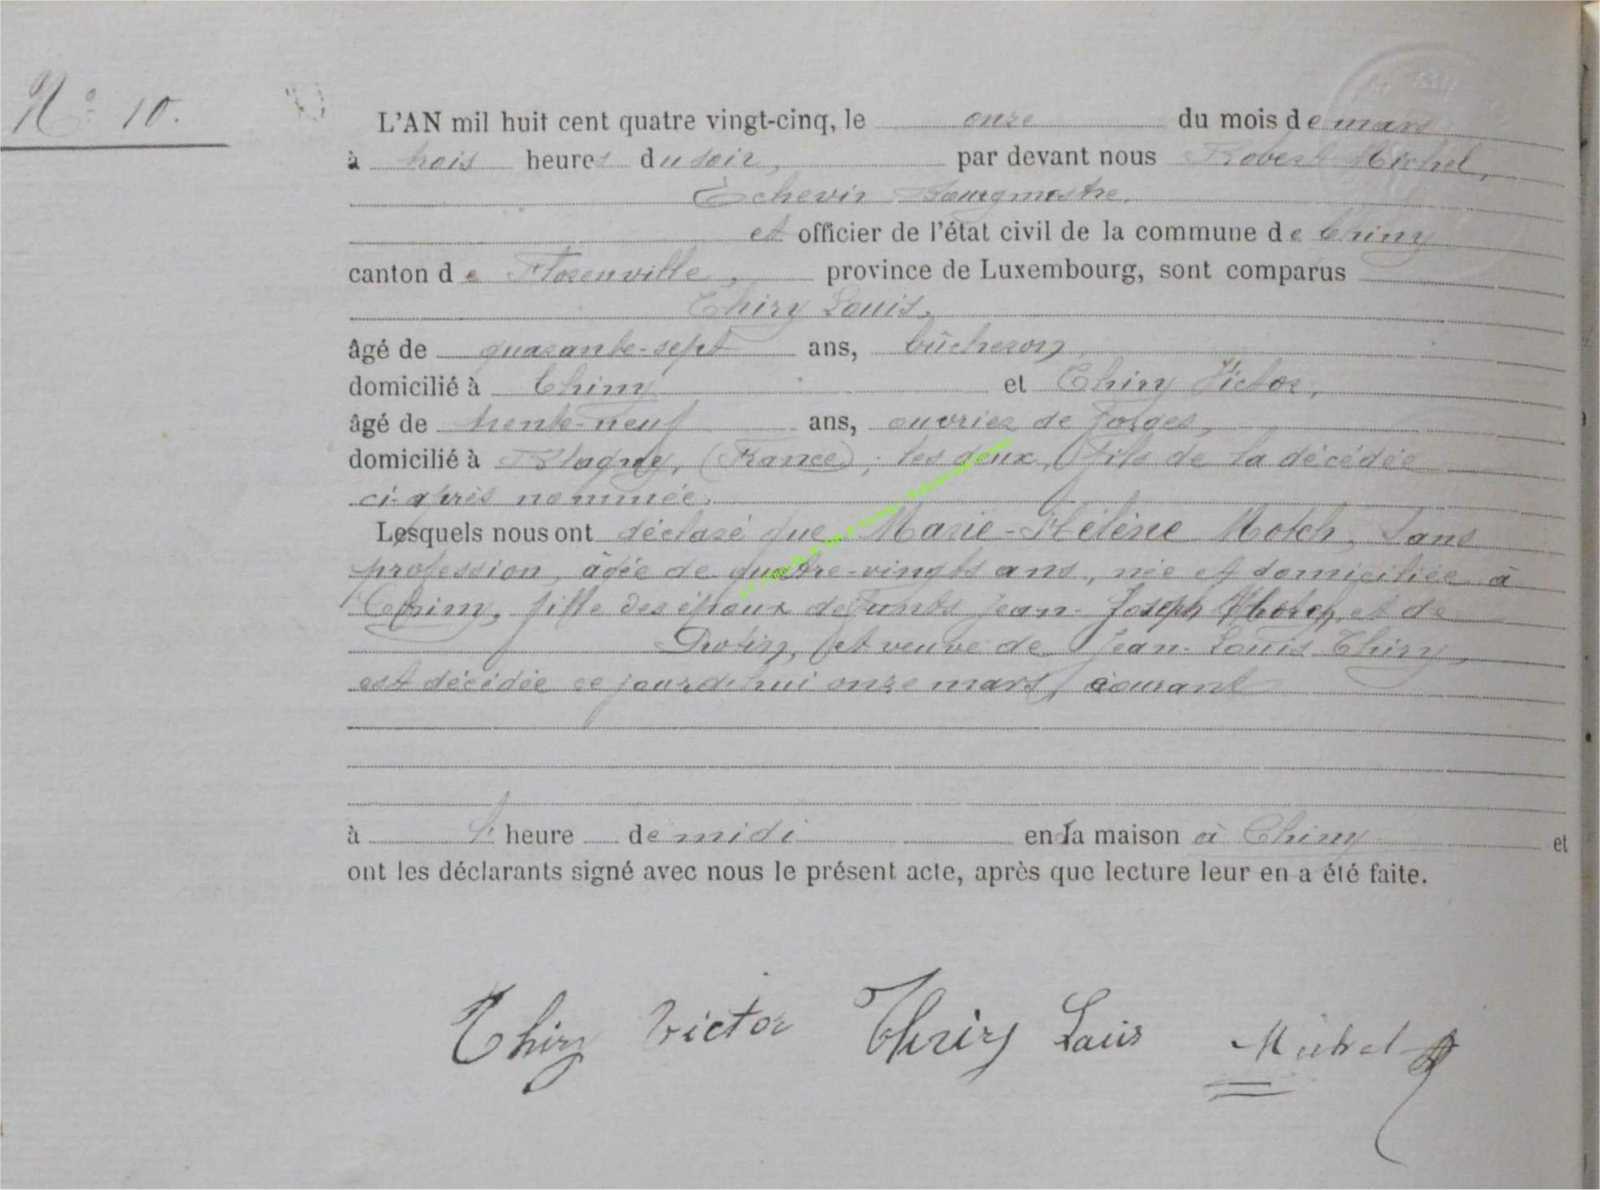 N° 10.
L'AN mil huit cent quatre vingt-cinq, le onze du mois de mars
à trois heures du soir, par devant nous Robert Michel,
Échevin Bourgmestre
et officier de l'état civil de la commune de Chiny
canton de Florenville, province de Luxembourg, sont comparus
Thiry Louis,
âgé de quarante-sept ans, bûcheron
domicilié à Chiny et Thiry Victor,
âgé de trente-neuf ans, ouvrier de forges,
domicilié à Blagny, (France), les deux, fils de la décédée
ci-après nommée.
Lesquels nous ont déclaré que Marie-Hélène Motch, sans
profession, âgée de quatre-vingts ans, née et domiciliée à
Chiny, fille des époux défunts Jean-Joseph et de
et veuve de Jean-Louis Thiry,
est décédée ce jourd'hui onze mars, courant
à l' heure de midi en la maison à Chiny et
ont les déclarants signé avec nous le présent acte, après que lecture leur en a été faite.
Thiry Victor Thiry Louis Michel